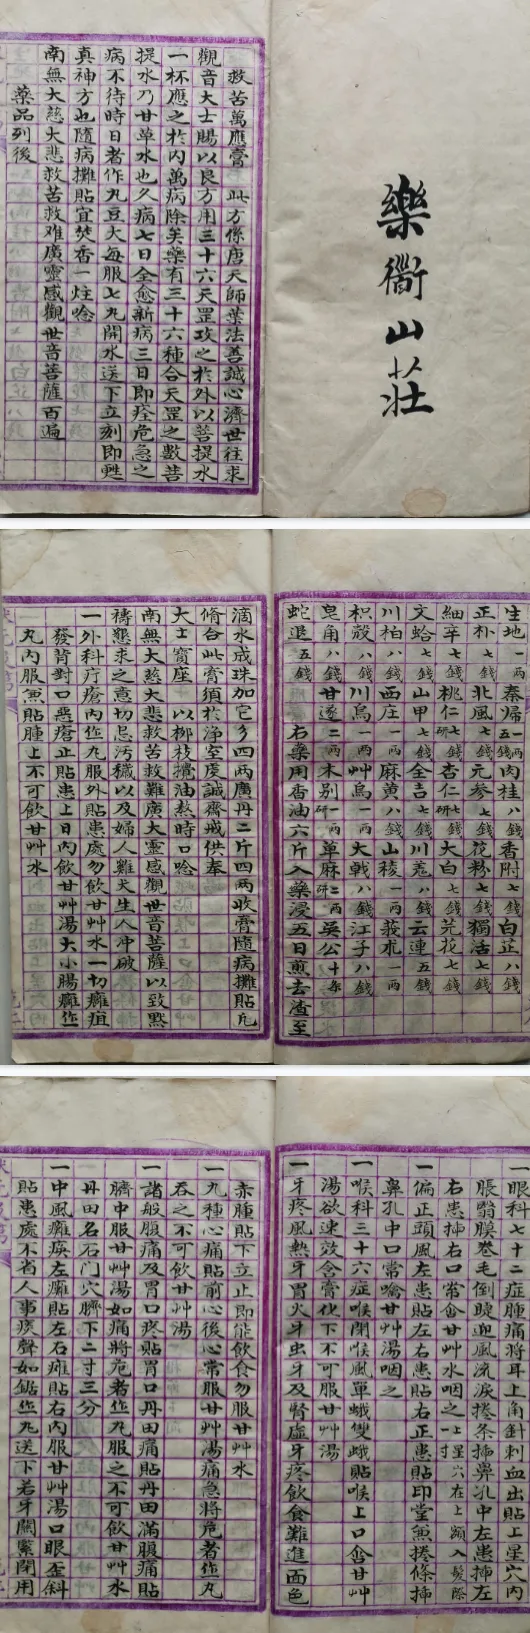 樂衢山莊
救苦萬應膏 此方係唐天師葉法善誠心濟世往求
觀音大士賜以良方用三十六天罡攻之於外以菩提水
一杯應之於內萬病除矣藥有三十六種合天罡之數菩
提水乃甘草水也久病七日全愈新病三日即痊危急之
病不待時日者作丸豆大每服七丸開水送下立刻即甦
真神方也隨病攤貼宜焚香一炷唸
南無大慈大悲救苦救难廣靈感觀世音菩薩百遍
藥品列後
生地一两 秦歸一两五錢 肉桂八錢 香附七錢 白芷八錢
正朴七錢 北風七錢 元参七錢 花粉七錢 獨活七錢
細辛七錢 桃仁七研 杏仁七研 大白七錢 芫花七錢
文蛤七錢 山甲七錢 全吉七錢 川羗八錢 云連五錢
川柏八錢 西庄一两 麻黄八錢 山稜一两 莪朮一两
枳殼八錢 川烏一两 艸烏一两 大戟八錢 江子八錢
皂角八錢 甘遂二两 木别一两研 草麻二两研 吳公十条
蛇退五錢 右藥用香油六斤入藥浸五日煎去渣至
滴水成珠加它彡四两廣丹二斤四两收膏隨病攤貼凢
脩合此膏須於淨室虔誠齋戒供奉
大士寶座 以柳枝攪油熬時口唸
南無大慈大悲救苦救難廣大靈感觀世音菩薩以致默
禱懇求之意切忌汚穢以及婦人雞犬生人冲破
一外科疔瘡內作丸服外貼患處勿飲甘艸水一切癰疽
發背對口惡瘡止貼患上日內飲甘艸湯大小腸癰作
丸內服魚貼腫上不可飲甘艸水
一眼科七十二症腫痛將耳上角針刺血出貼上星穴內
脹翳膜卷毛倒睫迎風流淚捲条揷鼻孔中左患揷左
右患揷右口常飲甘艸水咽之上星穴在上顖入髮際一寸
一偏正頭風左患貼左右患貼右正患貼印堂魚捲條揷
鼻孔中口常噙甘艸湯咽之
一喉科三十六症喉閉喉風單蛾雙蛾貼喉上口飲甘艸
湯欲速效含膏化下不可服甘艸湯
一牙疼風熱牙胃火牙虫牙及腎虛牙疼飲食難進面色
赤腫貼下立止即能飲食勿服甘艸水
一九種心痛貼前心後心常服甘艸湯痛急將危者作丸
吞之不可飲甘艸湯
一諸般腹痛及胃口疼貼胃口丹田痛貼丹田滿腹痛貼
臍中服甘艸湯如痛將危者作丸服之不可飲甘艸水
丹田名石門穴臍下二寸三分
一中風癱瘓左癱貼左右癱貼右內服甘艸湯口眼歪斜
貼患處不省人事痰聲如鋸作丸送下若牙關緊閉用